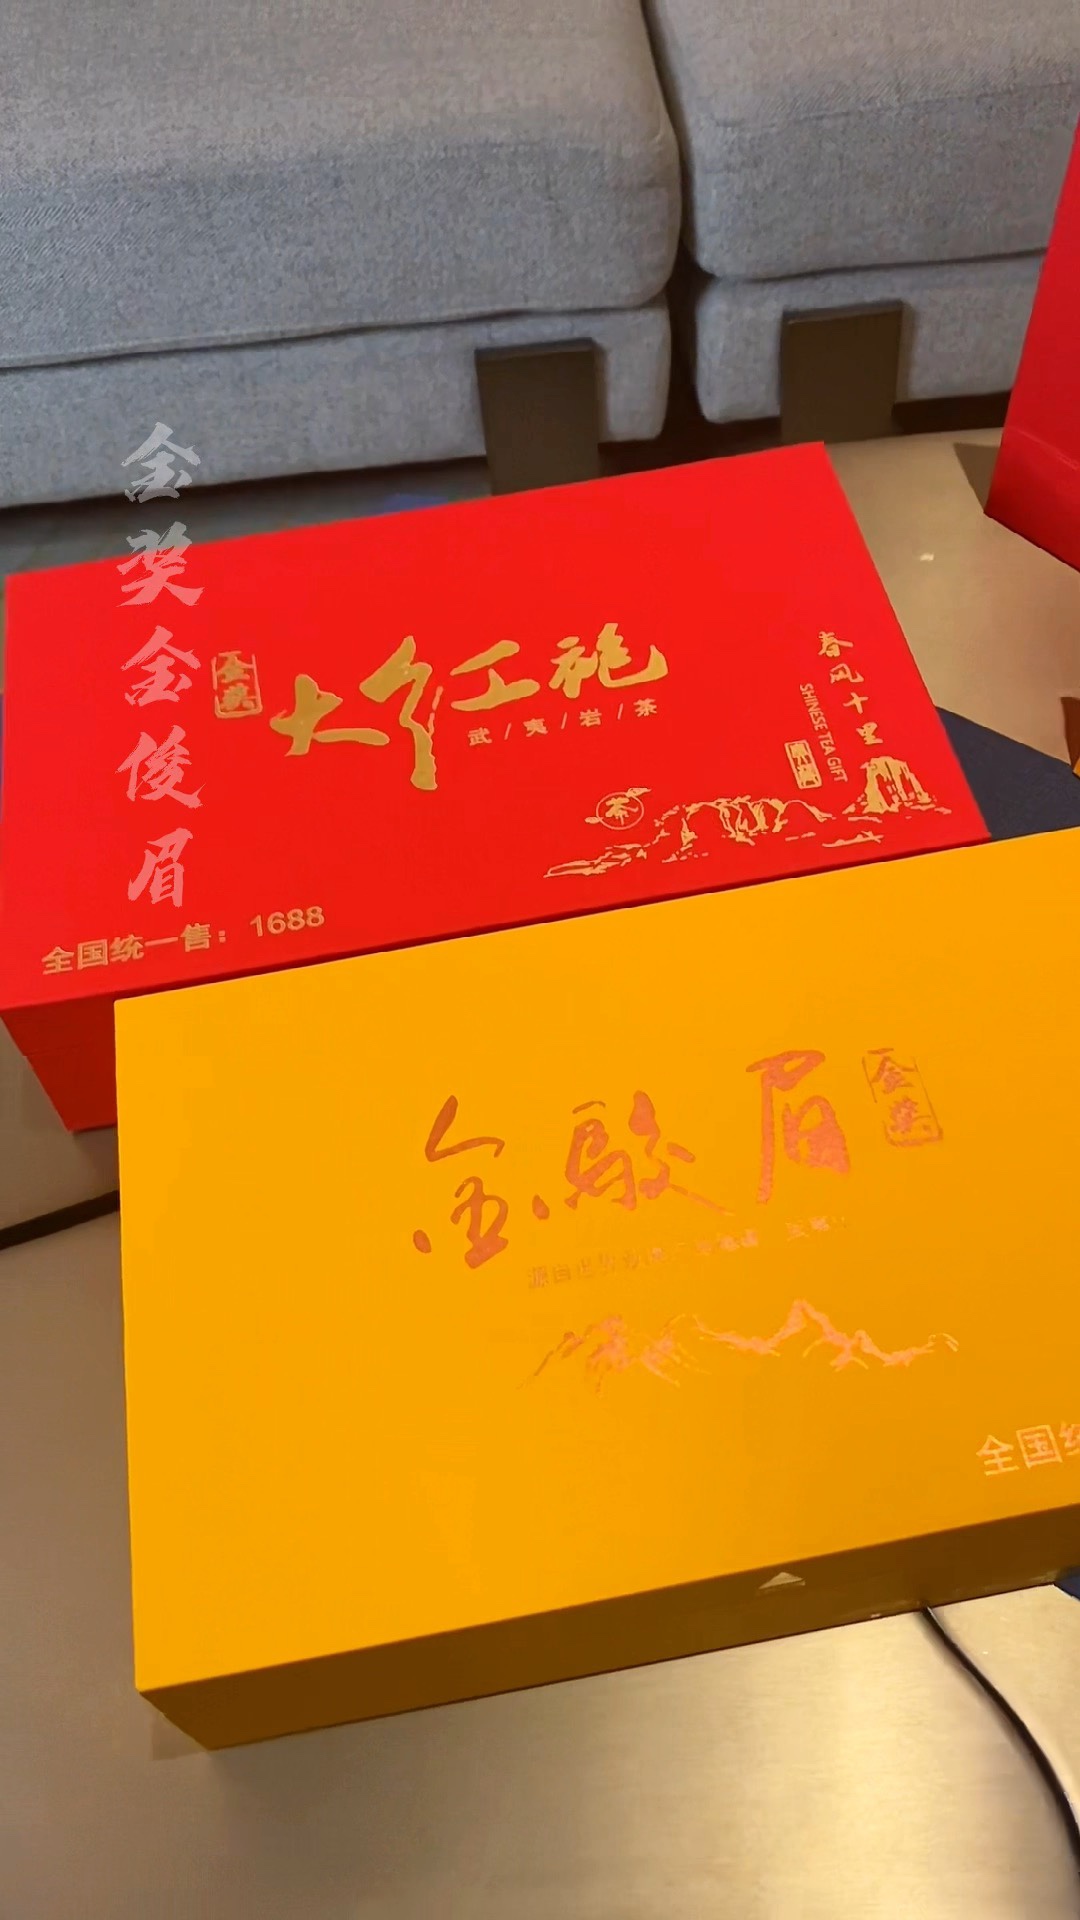 金奖金俊眉
金奖
大红袍
武/夷/岩/茶
春风十里
SHINESE TEA GIFT
茶
全国统一售：1688
金駿眉
金奖
全国统